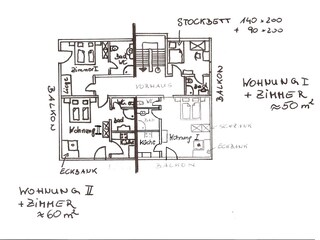 STOCKBETT 140×200
+ 90×200
Zimmer I
Bad
WC
BALKON
VORHAUS
BALKON
WOHNUNG I
+ ZIMMER
≈50 m²
Wohnung II
Bad
Küche
Wohnung I
ECKBANK
ECKBANK
BALKON
WOHNUNG II
+ ZIMMER
≈60 m²